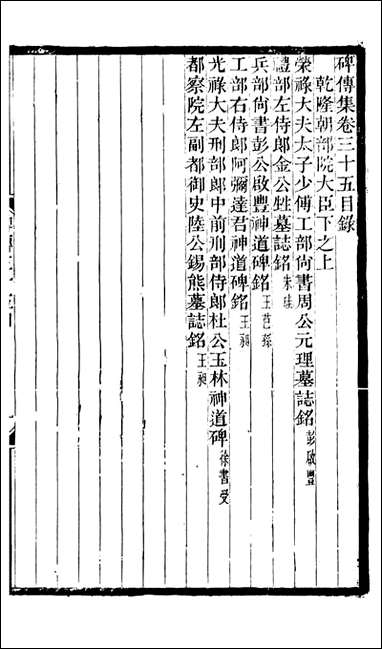 碑傳集卷三十五目錄
乾隆朝部院大臣下之上
榮祿大夫太子少傅工部尚書周公元理墓誌銘 彭啟豐
禮部左侍郎金公甡墓誌銘 朱珪
兵部尚書彭公啟豐神道碑銘 王芑孫
工部右侍郎阿彌達君神道碑銘 王昶
光祿大夫刑部郎中前刑部侍郎杜公玉林神道碑 徐書受
都察院左副都御史陸公錫熊墓誌銘 王昶